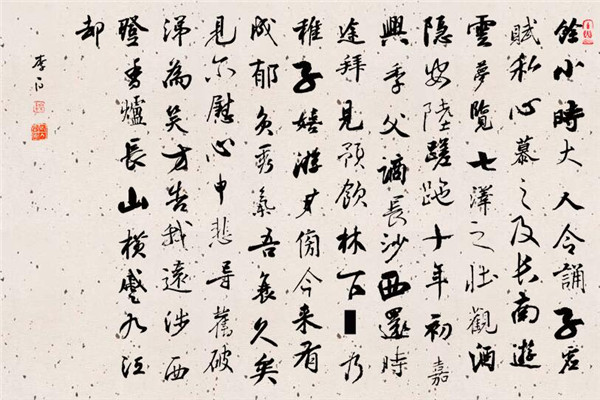 餘小時大人令誦子虛
賦私心慕之及长南遊
雲夢覽七澤之壯觀酒
隐安陸蹉跎十年初嘉
興季父謫長沙西還時
途拜見預飲林下乃
稚子嬉游在傍今来有
成郁负秀氣吾衰久矣
見尔慰心申悲导舊破
涕為笑方告我遠涉西
登香爐長山横蹙九江
却
李白